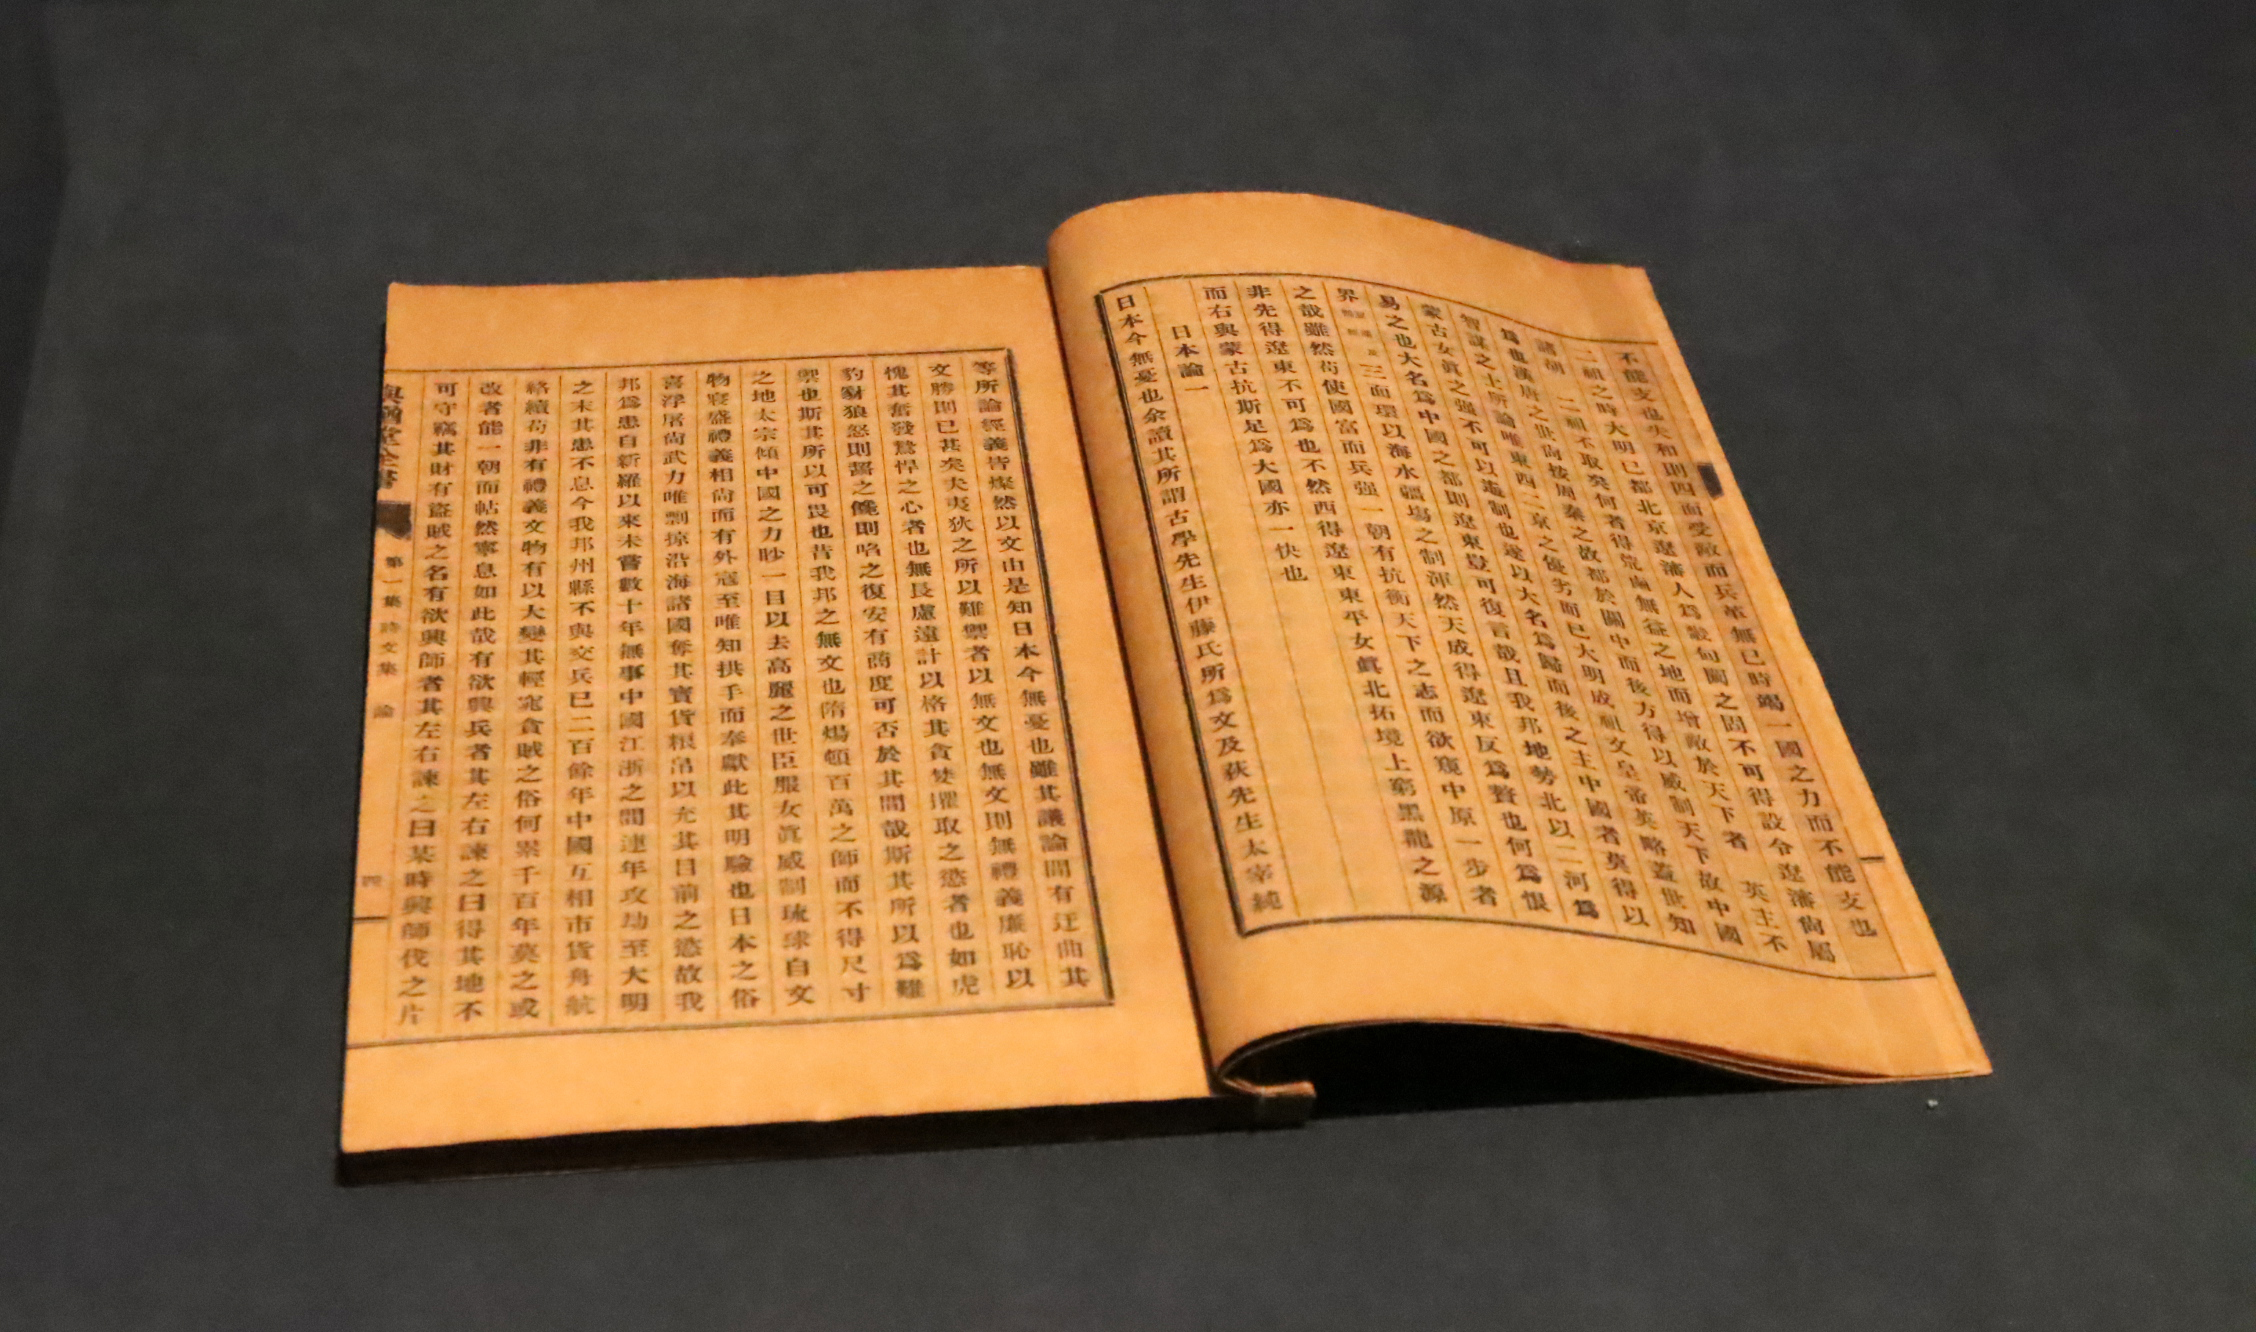 不能支也失和則四面受敵而兵革無已時竭一國之力而不能支也
二祖之時大明已都北京遼瀋人爲畿甸關之固不可得設令遼瀋尙屬
諸胡 二祖不取矣何者得荒鹵無益之地而增敵於天下者 英主不
爲也漢唐之世尙按周秦之故都於關中而後方得以威制天下故中國
智謀之士所論唯東西二京之優劣而已大明成祖文皇帝英略蓋世知
蒙古女眞之强不可以遙制也遂以大名爲歸而後之主中國者莫得以
易之也大名爲中國之都則遼東豈可復言哉且我邦地勢北以二河爲
界 三面環以海水疆場之制渾然天成得遼東反爲贅也何爲恨
之哉雖然苟使國富而兵强一朝有抗衡天下之志而欲窺中原一步者
非先得遼東不可爲也不然西得遼東東平女眞北拓境上窮黑龍之源
而右與蒙古抗斯足爲大國亦一快也
日本論一
日本今無憂也余讀其所謂古學先生伊藤氏所爲文及荻先生太宰純
等所論經義皆燦然以文由是知日本今無憂也雖其議論間有迂曲其
文勝則已甚矣夫夷狄之所以難禦者以無文也無文則無禮義廉恥以
愧其奮發鷙悍之心者也無長慮遠計以格其貪婪攫取之慾者也如虎
豹豺狼怒則齧之饞則啗之復安有商度可否於其間哉斯其所以爲難
禦也斯其所以可畏也昔我邦之無文也隋煬頓百萬之師而不得尺寸
之地太宗傾中國之力眇一目以去高麗之世臣服女眞威制琉球自文
物寢盛禮義相尙而有外寇至唯知拱手而奉獻此其明驗也日本之俗
喜浮屠尙武力唯剽掠沿海諸國奪其寶貨粮帛以充其目前之慾故我
邦爲患自新羅以來未嘗數十年無事中國江浙之間連年攻劫至大明
之末其患不息今我邦州縣不與交兵已二百餘年中國互相市貨舟航
絡續苟非有禮義文物有以大變其輕窕貪賊之俗何累千百年莫之或
改者能一朝而帖然寧息如此哉有欲興兵者其左右諫之曰得其地不
可守竊其財有盜賊之名有欲興師者其左右諫之曰某時興師伐之片
與猶堂全書
第一集 詩文集 論
四